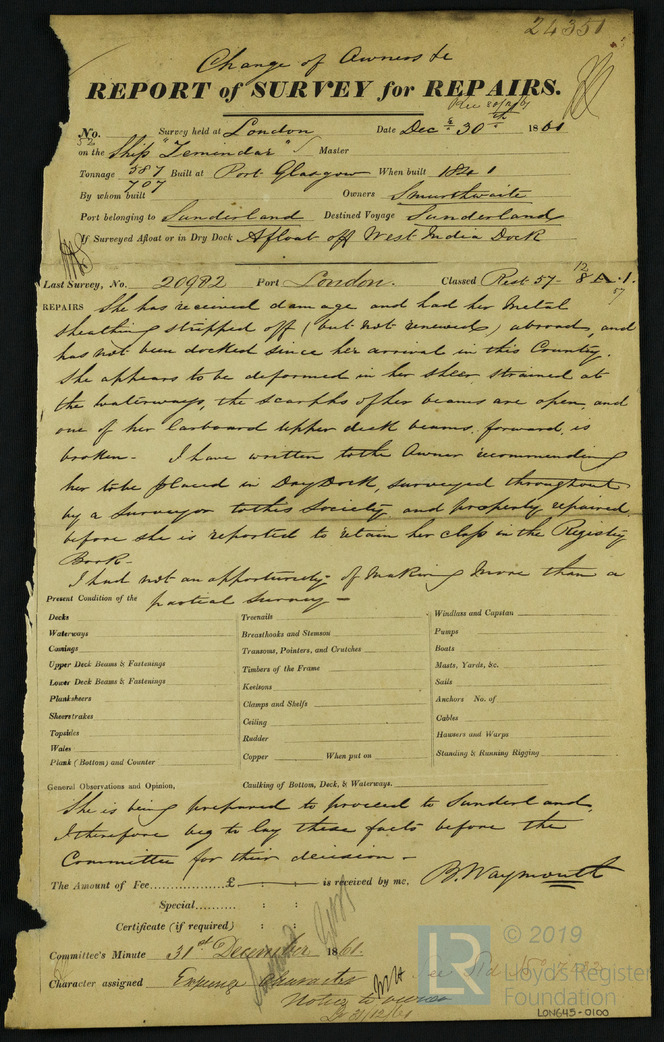 24351
Change of Owners &c
REPORT of SURVEY for REPAIRS.
No. 52 Survey held at London Date Decr 30th 1861
on the Ship "Zemindar" Master
Tonnage 587 707 Built at Port Glasgow When built 1841
By whom built Owners Smurthwaite
Port belonging to Sunderland Destined Voyage Sunderland
If Surveyed Afloat or in Dry Dock Afloat off West India Dock
Last Survey, No. 20982 Port London. Classed Rest. 57- 8 A.1.
12
57
REPAIRS She has received damage and had her Metal
sheathing stripped off (but not renewed) abroad, and
has not been docked since her arrival in this Country.
She appears to be deformed in her sheer strained at
the waterways, the scarphs of her beams are open, and
one of her larboard upper deck beams, forward, is
broken - I have written to the Owner recommending
her to be placed in Dry Dock, surveyed throughout
by a Surveyor to this Society and properly repaired
before she is reported to retain her class in the Registry
Book -
I had not an opportunity of making more than a
Present Condition of the partial survey -
Decks
Waterways
Comings
Upper Deck Beams & Fastenings
Lower Deck Beams & Fastenings
Planksheers
Sheerstrakes
Topsides
Wales
Plank (Bottom) and Counter
Treenails
Breasthooks and Stemson
Transoms, Pointers, and Crutches
Timbers of the Frame
Keelsons
Clamps and Shelfs
Ceiling
Rudder
Copper When put on
Windlass and Capstan
Pumps
Boats
Masts, Yards, &c.
Sails
Anchors No. of
Cables
Hawsers and Warps
Standing & Running Rigging
General Observations and Opinion, Caulking of Bottom, Deck, & Waterways.
She is being prepared to proceed to Sunderland,
I therefore beg to lay these facts before the
Committee for their decision -
The Amount of Fee............... £ : : is received by me, B. Waymouth
Special.......... : :
Certificate (if required) : :
Committee's Minute 31st December 1861.
Character assigned Expunge character
Notice to owner
31/12/61
LR
© 2019
Lloyd's Register
Foundation
LON645-0100